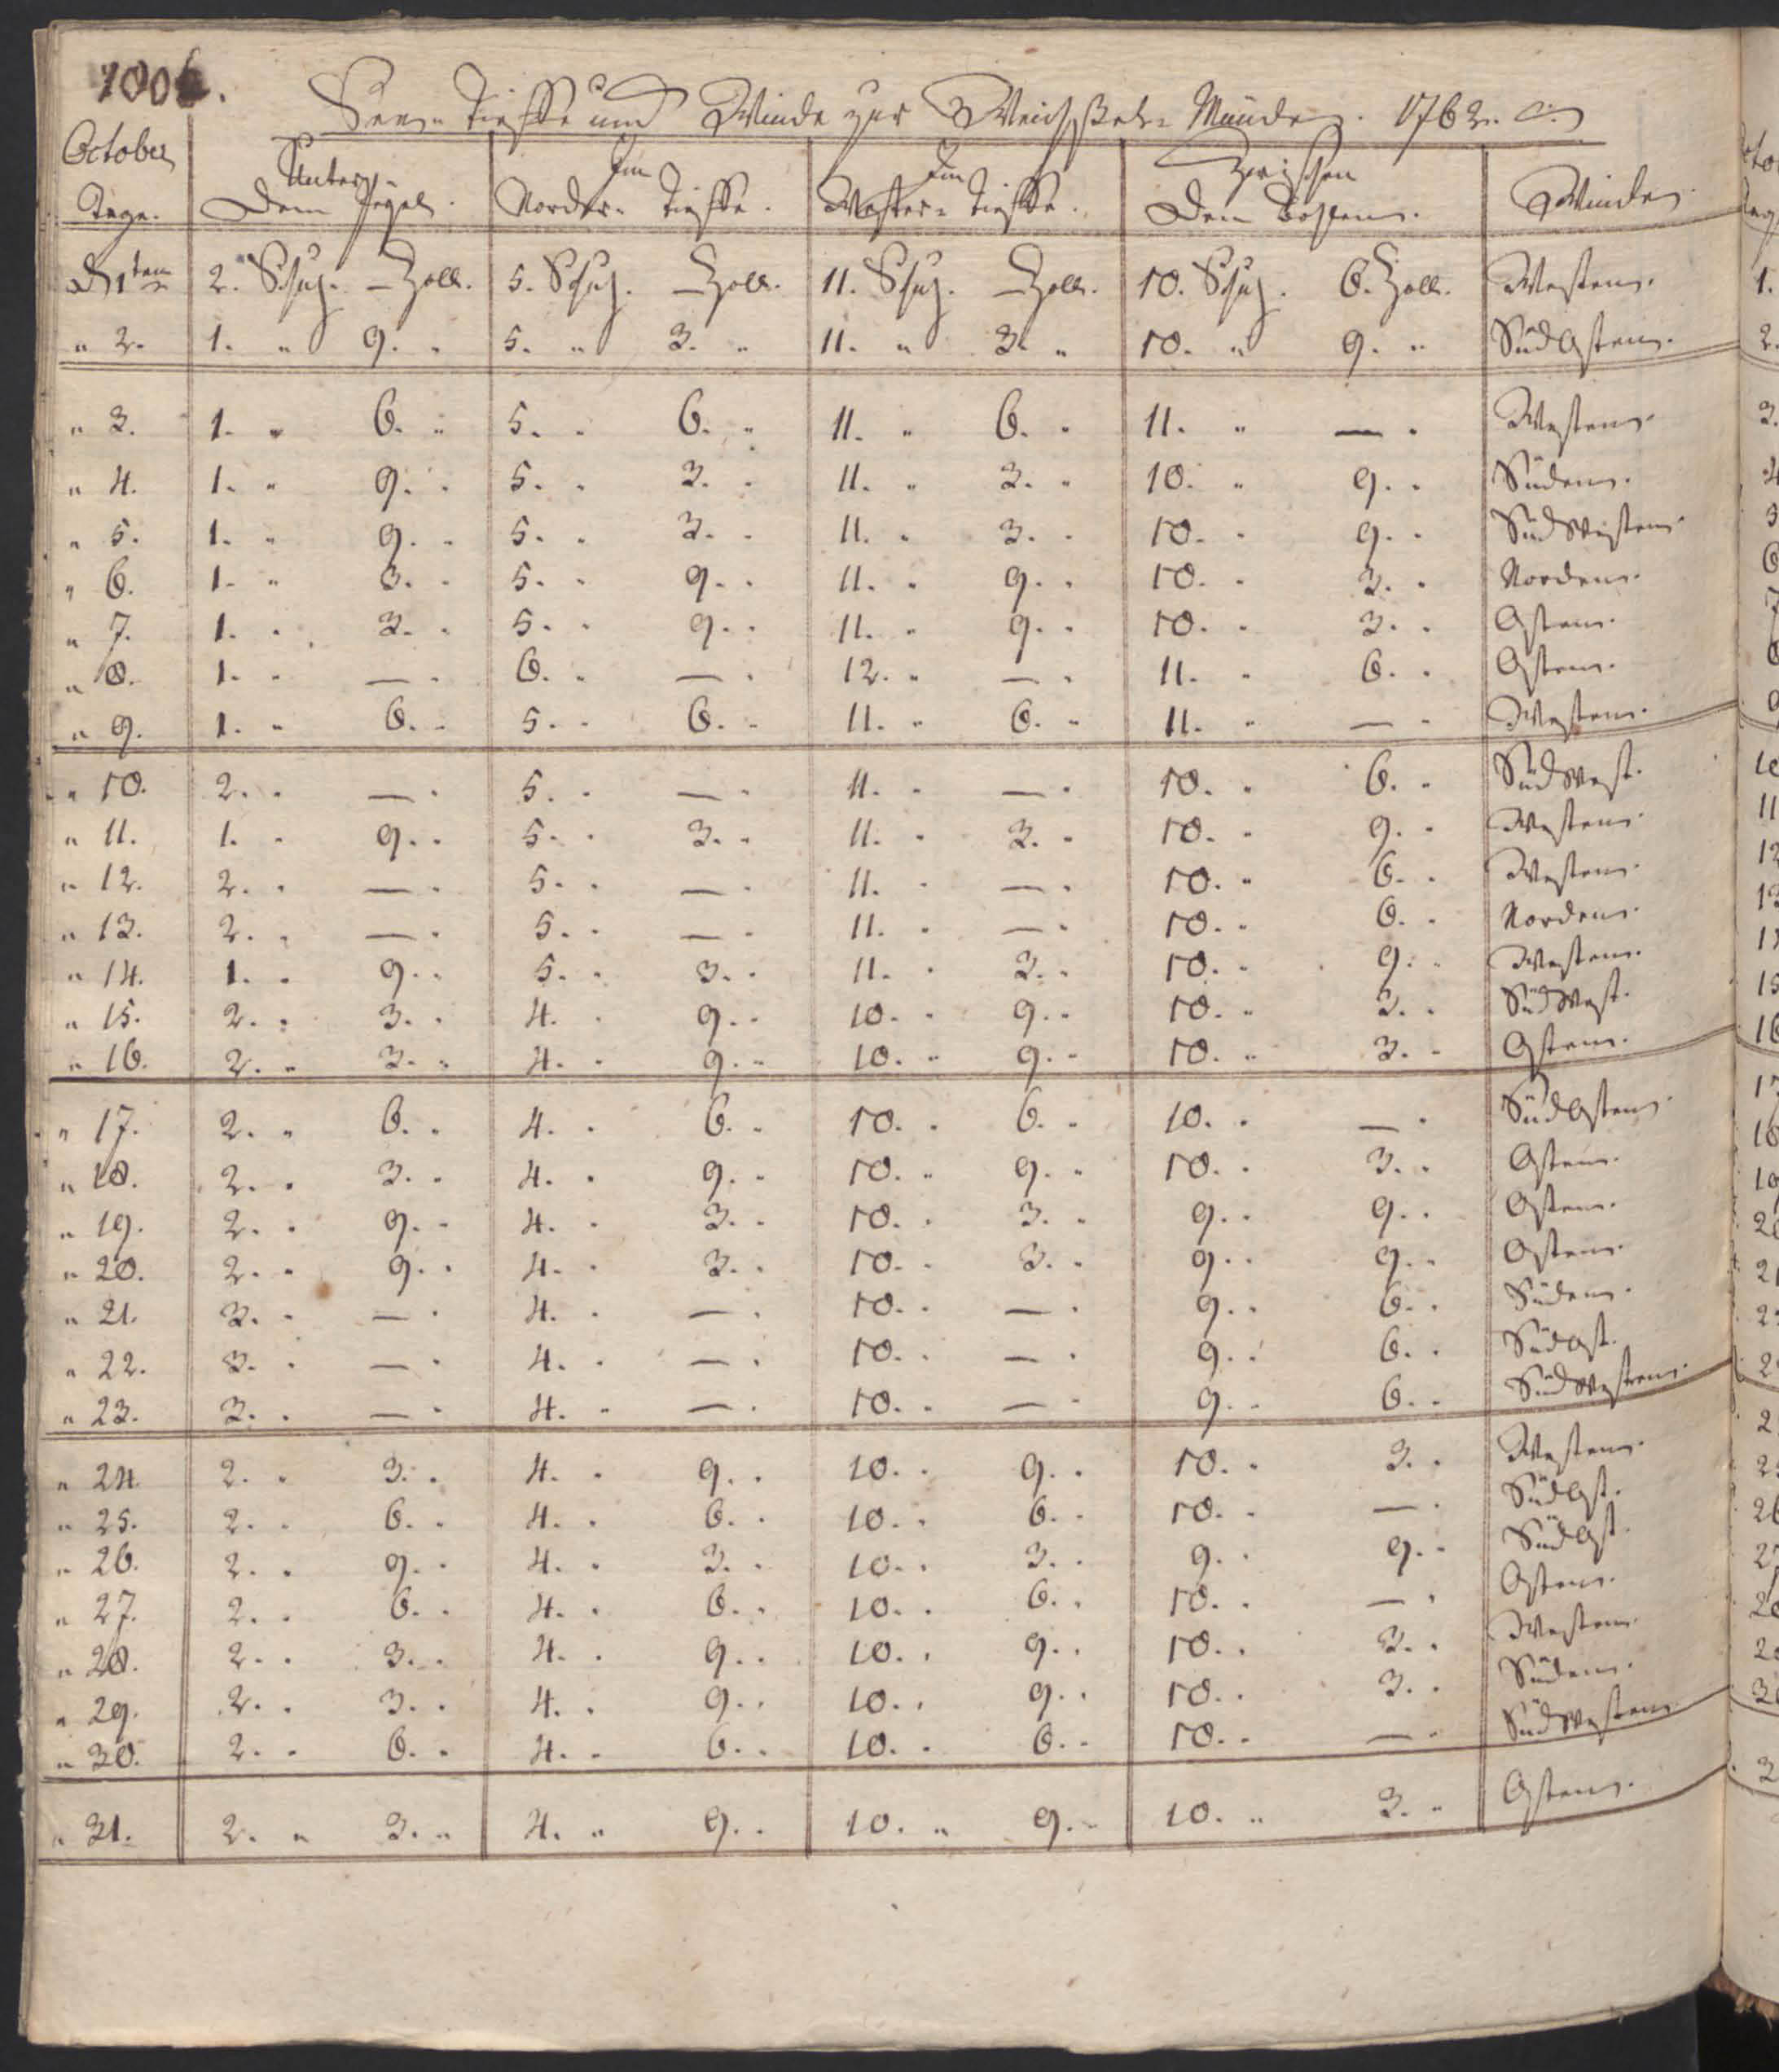 1006.
See-Tieffe und Winde zur Weichßel-Münde. 1762.
October Unter Im Im Zwischen
Tage. Dem Pegel. Norder-Tieffe. Wester-Tieffe. Den Bohlen. Winde.
D 1ten 2. Schuh. — Zoll. 5. Schuh. — Zoll. 11. Schuh. — Zoll. 10. Schuh. 6. Zoll. Westen.
" 2. 1. " 9. " 5. " 3. " 11. " 3. " 10. " 9. " SüdOsten.
" 3. 1. " 6. " 5. " 6. " 11. " 6. " 11. " — " Westen.
" 4. 1. " 9. " 5. " 3. " 11. " 3. " 10. " 9. " Süden.
" 5. 1. " 9. " 5. " 3. " 11. " 3. " 10. " 9. " SüdWesten.
" 6. 1. " 3. " 5. " 9. " 11. " 9. " 10. " 3. " Norden.
" 7. 1. " 3. " 5. " 9. " 11. " 9. " 10. " 3. " Osten.
" 8. 1. " — " 6. " — " 12. " — " 11. " 6. " Osten.
" 9. 1. " 6. " 5. " 6. " 11. " 6. " 11. " — " Westen.
" 10. 2. " — " 5. " — " 11. " — " 10. " 6. " SüdWest.
" 11. 1. " 9. " 5. " 3. " 11. " 3. " 10. " 9. " Westen.
" 12. 2. " — " 5. " — " 11. " — " 10. " 6. " Westen.
" 13. 2. " — " 5. " — " 11. " — " 10. " 6. " Norden.
" 14. 1. " 9. " 5. " 3. " 11. " 3. " 10. " 9. " Westen.
" 15. 2. " 3. " 4. " 9. " 10. " 9. " 10. " 3. " SüdWest.
" 16. 2. " 3. " 4. " 9. " 10. " 9. " 10. " 3. " Osten.
" 17. 2. " 6. " 4. " 6. " 10. " 6. " 10. " — " SüdOsten.
" 18. 2. " 3. " 4. " 9. " 10. " 9. " 10. " 3. " Osten.
" 19. 2. " 9. " 4. " 3. " 10. " 3. " 9. " 9. " Osten.
" 20. 2. " 9. " 4. " 3. " 10. " 3. " 9. " 9. " Osten.
" 21. 3. " — " 4. " — " 10. " — " 9. " 6. " Süden.
" 22. 3. " — " 4. " — " 10. " — " 9. " 6. " SüdOst.
" 23. 3. " — " 4. " — " 10. " — " 9. " 6. " SüdWesten.
" 24. 2. " 3. " 4. " 9. " 10. " 9. " 10. " 3. " Westen.
" 25. 2. " 6. " 4. " 6. " 10. " 6. " 10. " — " SüdOst.
" 26. 2. " 9. " 4. " 3. " 10. " 3. " 9. " 9. " SüdOst.
" 27. 2. " 6. " 4. " 6. " 10. " 6. " 10. " — " Osten.
" 28. 2. " 3. " 4. " 9. " 10. " 9. " 10. " 3. " Westen.
" 29. 2. " 3. " 4. " 9. " 10. " 9. " 10. " 3. " Süden.
" 30. 2. " 6. " 4. " 6. " 10. " 6. " 10. " — " SüdWesten.
" 31. 2. " 3. " 4. " 9. " 10. " 9. " 10. " 3. " Osten.